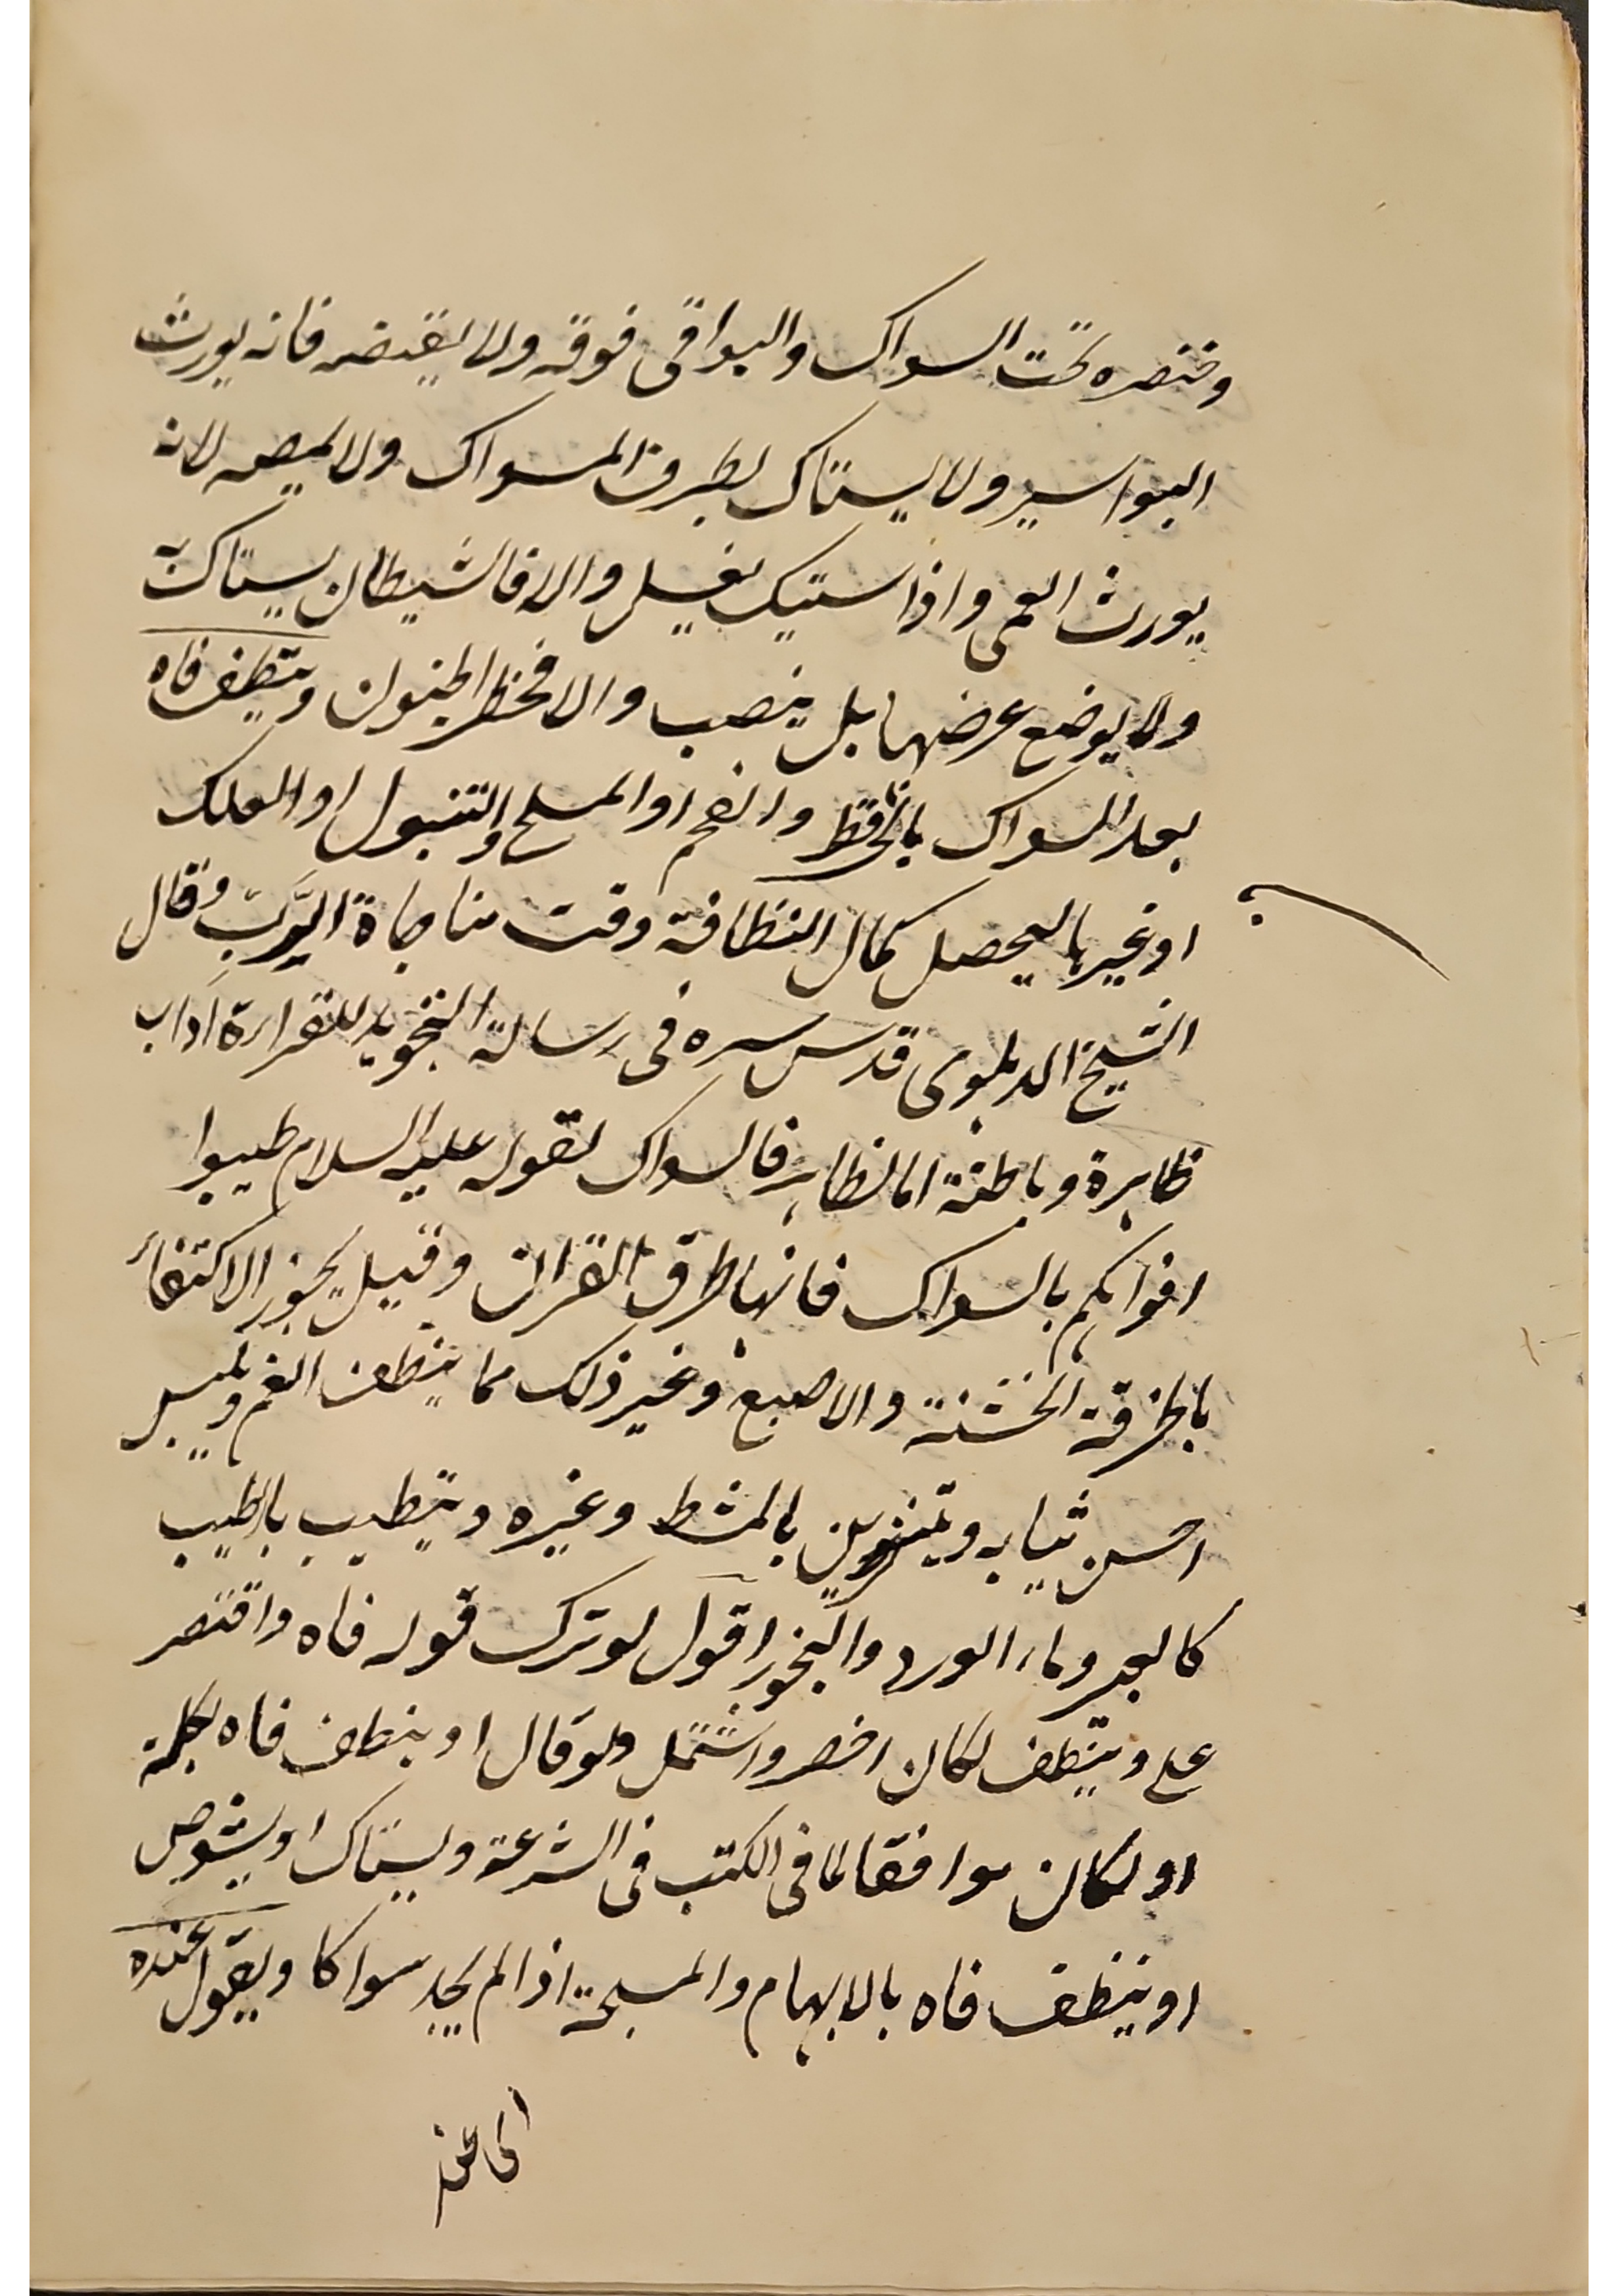 وخنصره تحت السواك والبواقى فوقه ولا يقبضه فانه يورث
البواسير ولا يستاك بطرف المسواك ولا يمصه لانه
يورث العمى واذا ستيك يغسل والا فالشيطان يستاك به
ولا يوضع عرضها بل ينصب والا فخطر الجنون وينظف فاه
بعد السواك والفحم او الملح والتنبول او العلك
او غيرها ليحصل كمال النظافة وقت مناجاة الرَّبِّ وقال
الشيخ الدهلوى قدس سره فى رسالة التجويد للقراءة اداب
ظاهرة وباطنة اما الظاهر فالسواك لقوله عليه السلام طيبوا
افواهكم بالسواك فانها طرق القران وقيل يجوز الاكتفاء
بالخرقة الخشنة والاصبع وغير ذلك مما ينظف الفم ويلبس
احسن ثيابه ويتزين بالمشط وغيره ويتطيب بالطيب
وماء الورد والبخور اقول لو ترك قوله فاه واقتصر
على وينظف لكان اخصر واشتمل ولو قال او ينظف فاه بكلمة
او لكان موافقا لما فى الكتب فى الشرعة ويستاك او يشوص
او ينظف فاه بالابهام والمسبحة اذا لم يجد سواكا ويقول عنده